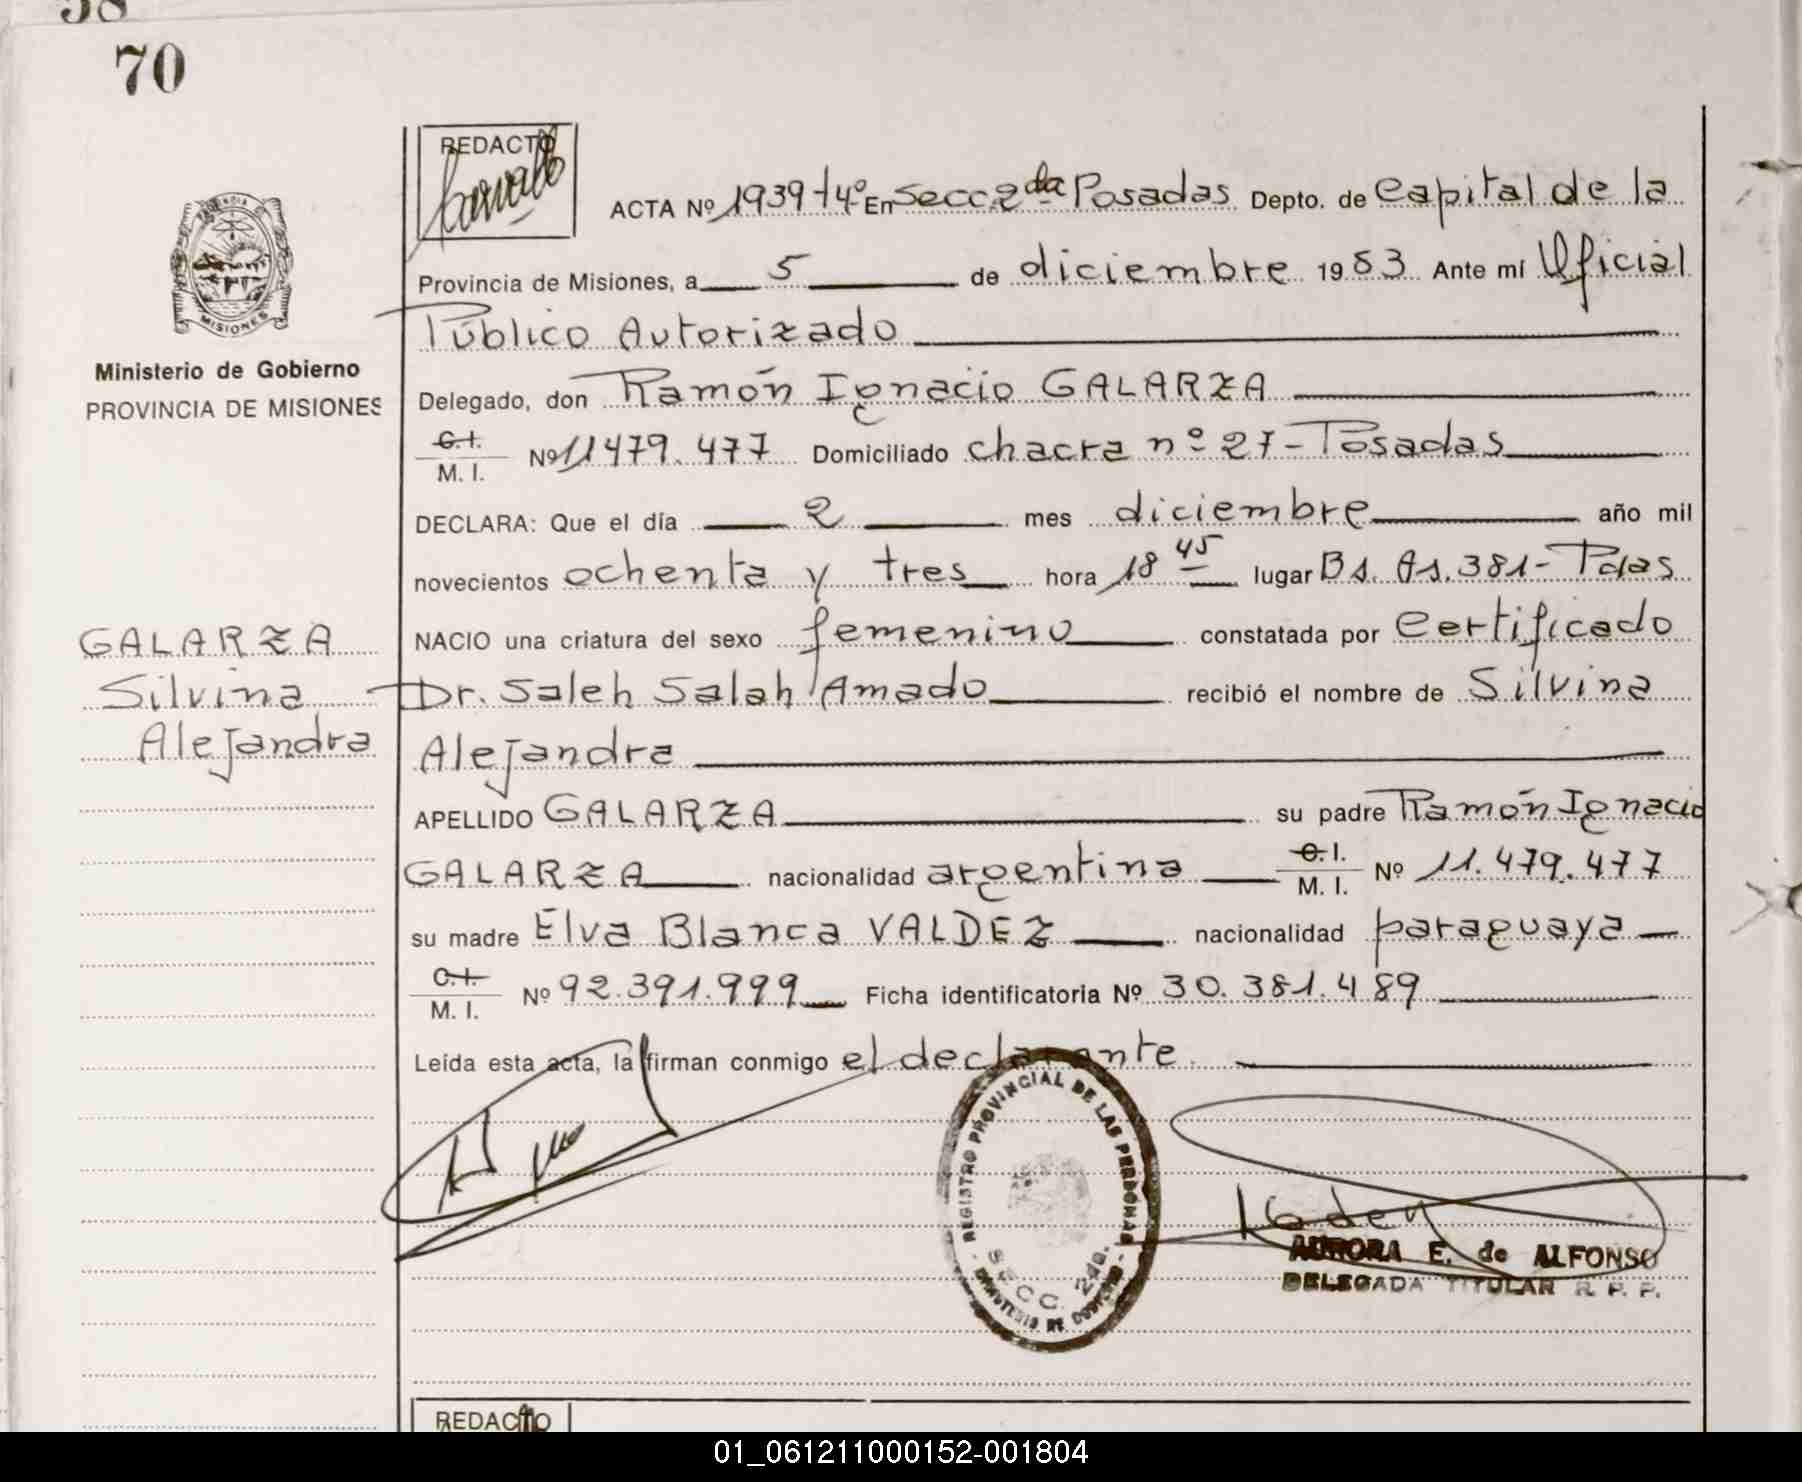 58
70
REDACTO
ACTA Nº 1939 t4º En Secc. 2da Posadas Depto. de Capital de la
Provincia de Misiones, a 5 de diciembre 1983 Ante mí Oficial
Público Autorizado
Delegado, don Ramón Ignacio GALARZA
C. I.
M. I. Nº 11479.477 Domiciliado chacra nº 27 - Posadas
DECLARA: Que el día 2 mes diciembre año mil
novecientos ochenta y tres hora 18 45 lugar Bs. As. 381 - Pdas
NACIO una criatura del sexo femenino constatada por Certificado
Dr. Saleh Salah Amado recibió el nombre de Silvina
Alejandra
APELLIDO GALARZA su padre Ramón Ignacio
GALARZA nacionalidad argentina C. I. M. I. Nº 11.479.477
su madre Elva Blanca VALDEZ nacionalidad paraguaya
C. I.
M. I. Nº 92.391.999 Ficha identificatoria Nº 30.381.489
Leída esta acta, la firman conmigo el declarante.
MISIONES
Ministerio de Gobierno
PROVINCIA DE MISIONES
GALARZA
Silvina
Alejandra
REGISTRO PROVINCIAL DE LAS PERSONAS
SECC. 2da.
MINISTERIO DE GOBIERNO
AURORA E. de ALFONSO
DELEGADA TITULAR R. P. P.
REDACTO
01_061211000152-001804